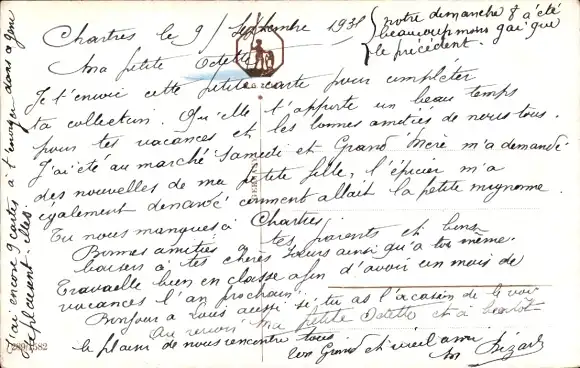 Chartres le 9 / Septembre 1938
notre dimanche 8 a été
beaucoup moins gai que
le précédent.
Ma petite Odette
Je t'envoie cette petite carte pour compléter
ta collection. Qu'elle t'apporte un beau temps
pour tes vacances et les bonnes amitiés de nous tous.
J'ai été au marché Samedi et Grand m'a demandé
des nouvelles de ma petite fille, l'épicier m'a
également demandé comment allait la petite mignonne.
Tu nous manques à Chartres.
Bonnes amitiés à tes parents et bons
baisers à tes chères sœurs ainsi qu'à toi même.
Travaille bien en classe afin d'avoir un mois de
vacances l'an prochain.
Bonjour à aussi si tu as l'occasion de le voir
Au revoir Ma petite Odette et à bientôt
le plaisir de nous rencontrer tous
ton Grand et vieil ami
Bizard
J'ai encore 9 cartes à t'envoyer dans ce genre
te plaisent-elles